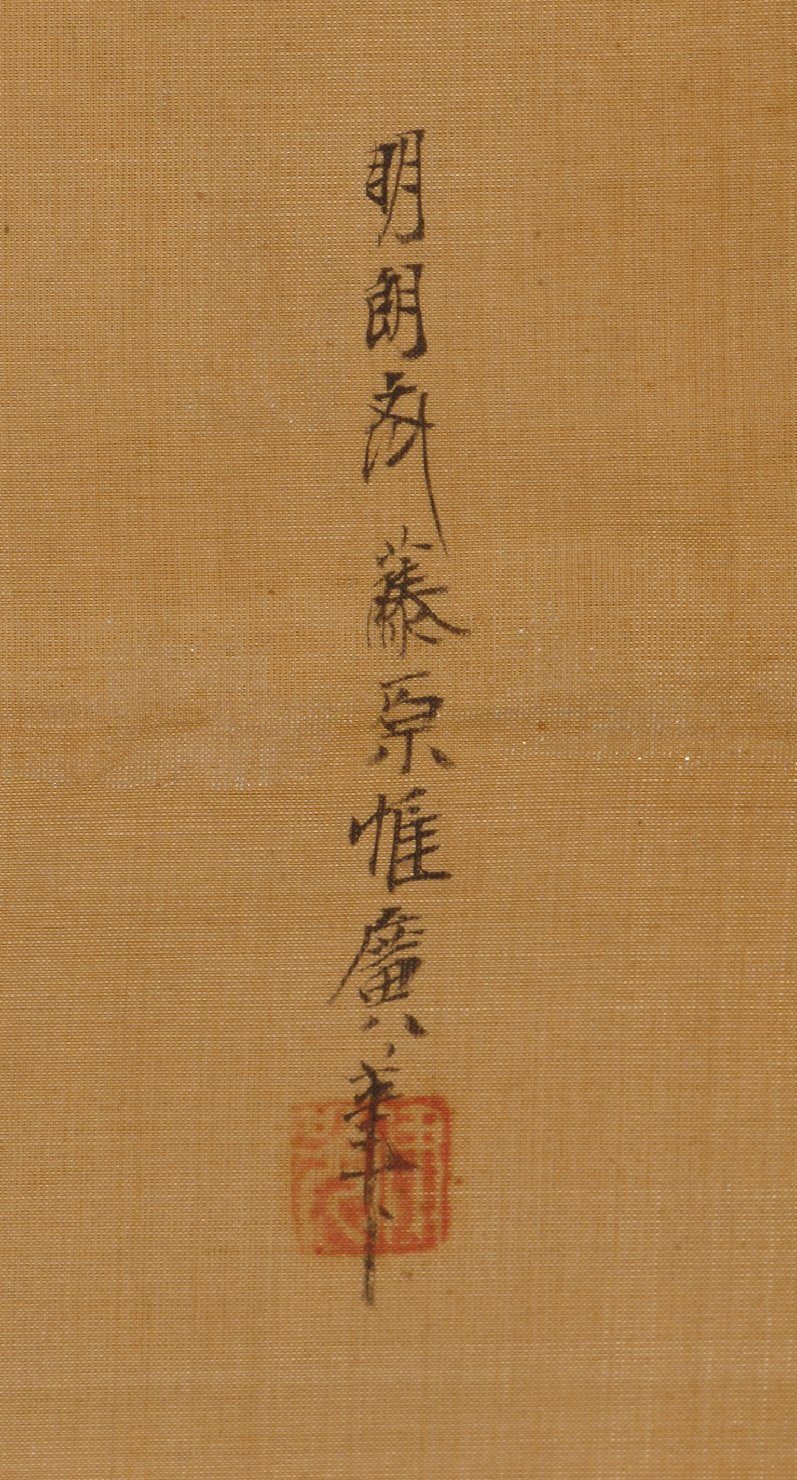 明朗斎藤原惟廣筆